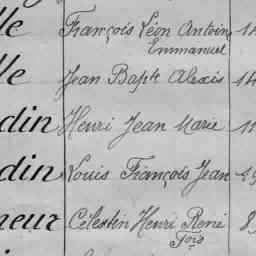 lle François Léon Antoin 14
Emmanuel
lle Jean Bapt Alexis 14
din Henri Jean Marie 11
din Louis François Jean 49
neur Célestin Henri René 8